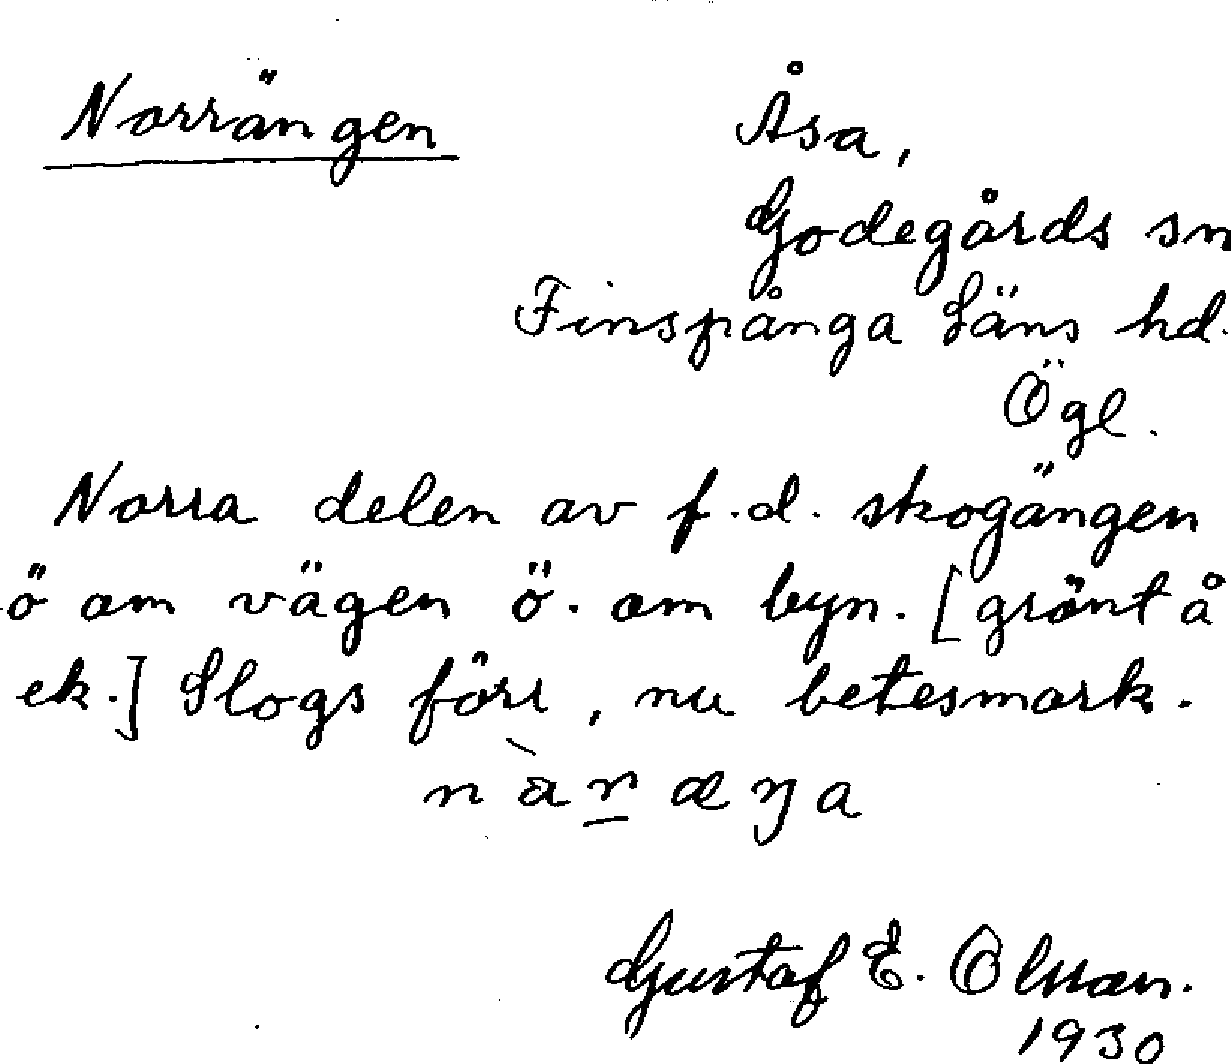 Norrängen
Åsa,
Godegårds sn
Finspånga Läns hd.
Ögl.
Norra delen av f.d. skogängen
ö om vägen ö. om byn. [grönt å
ek.] Slogs förr, nu betesmark.
nàræŋa
Gustaf E. Olsson.
1930